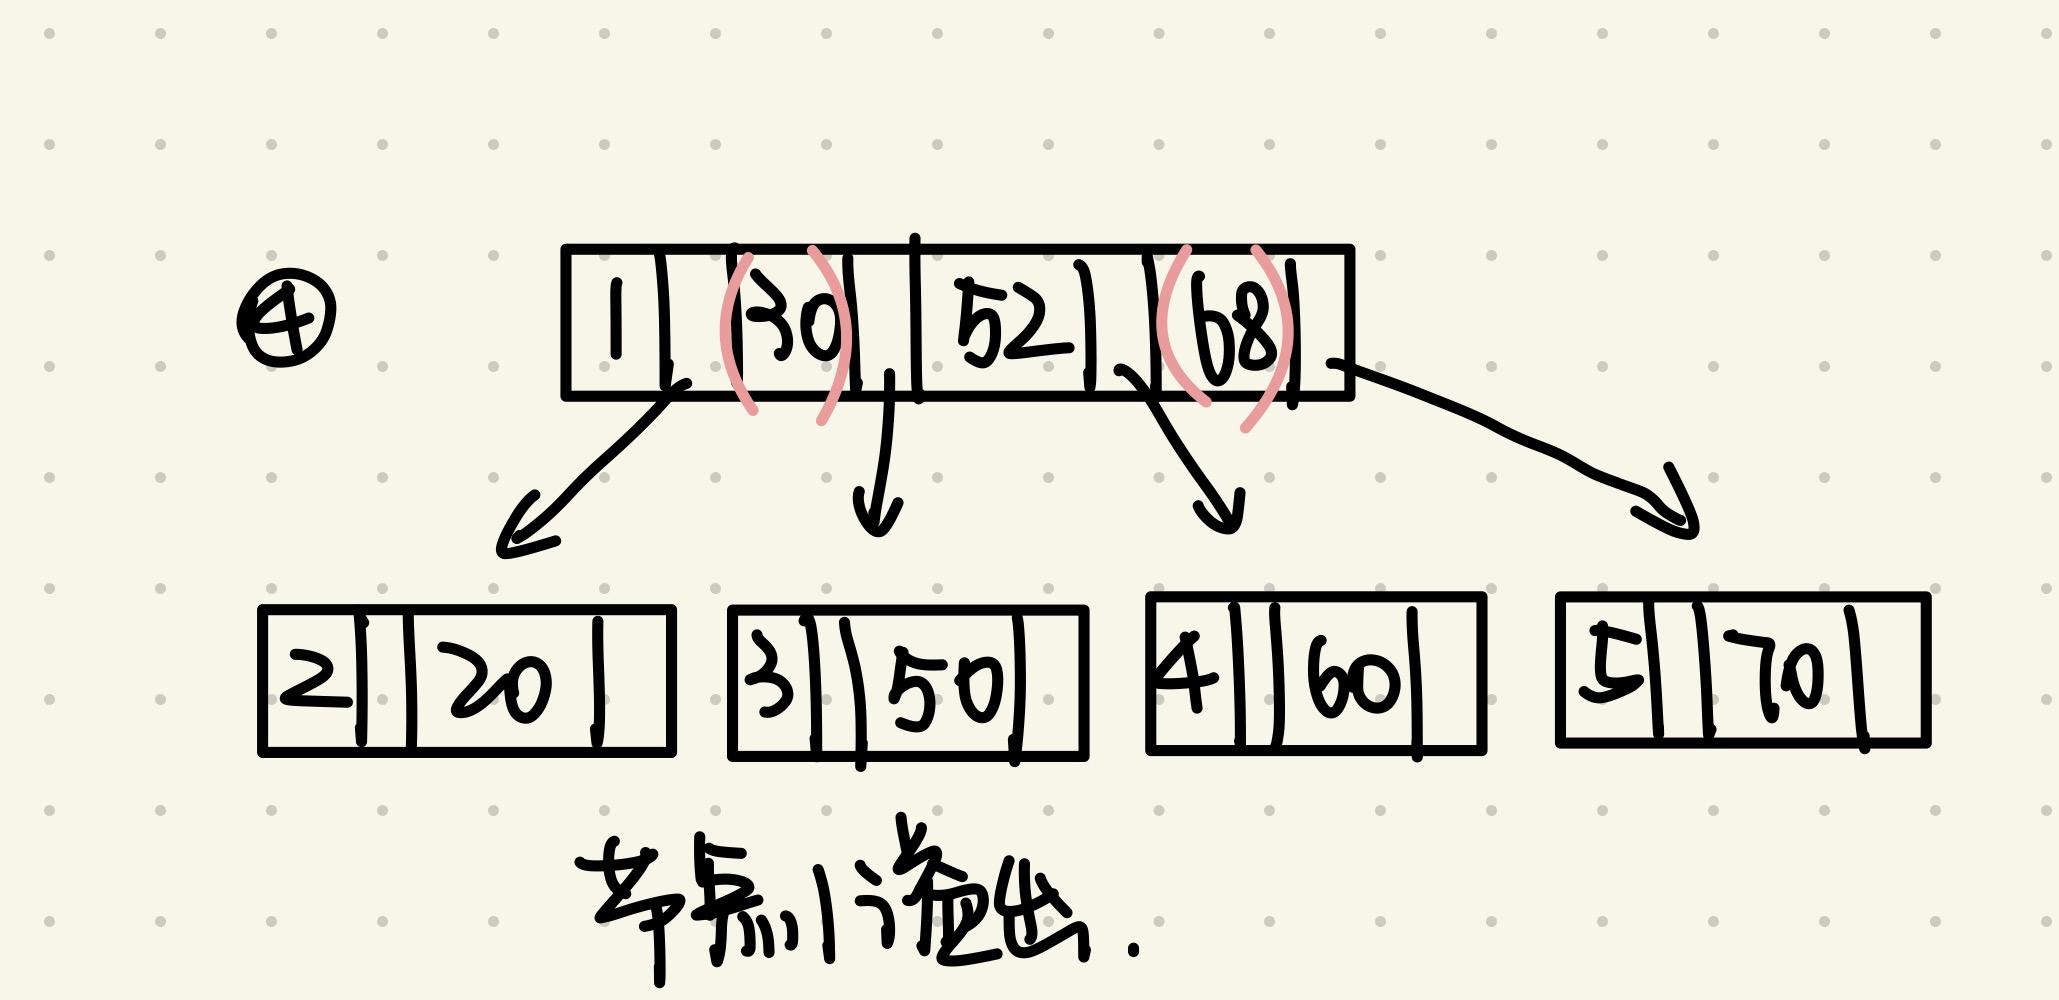 ④
1 (30) 52 (68)
2 20 3 50 4 60 5 70
节点1溢出.